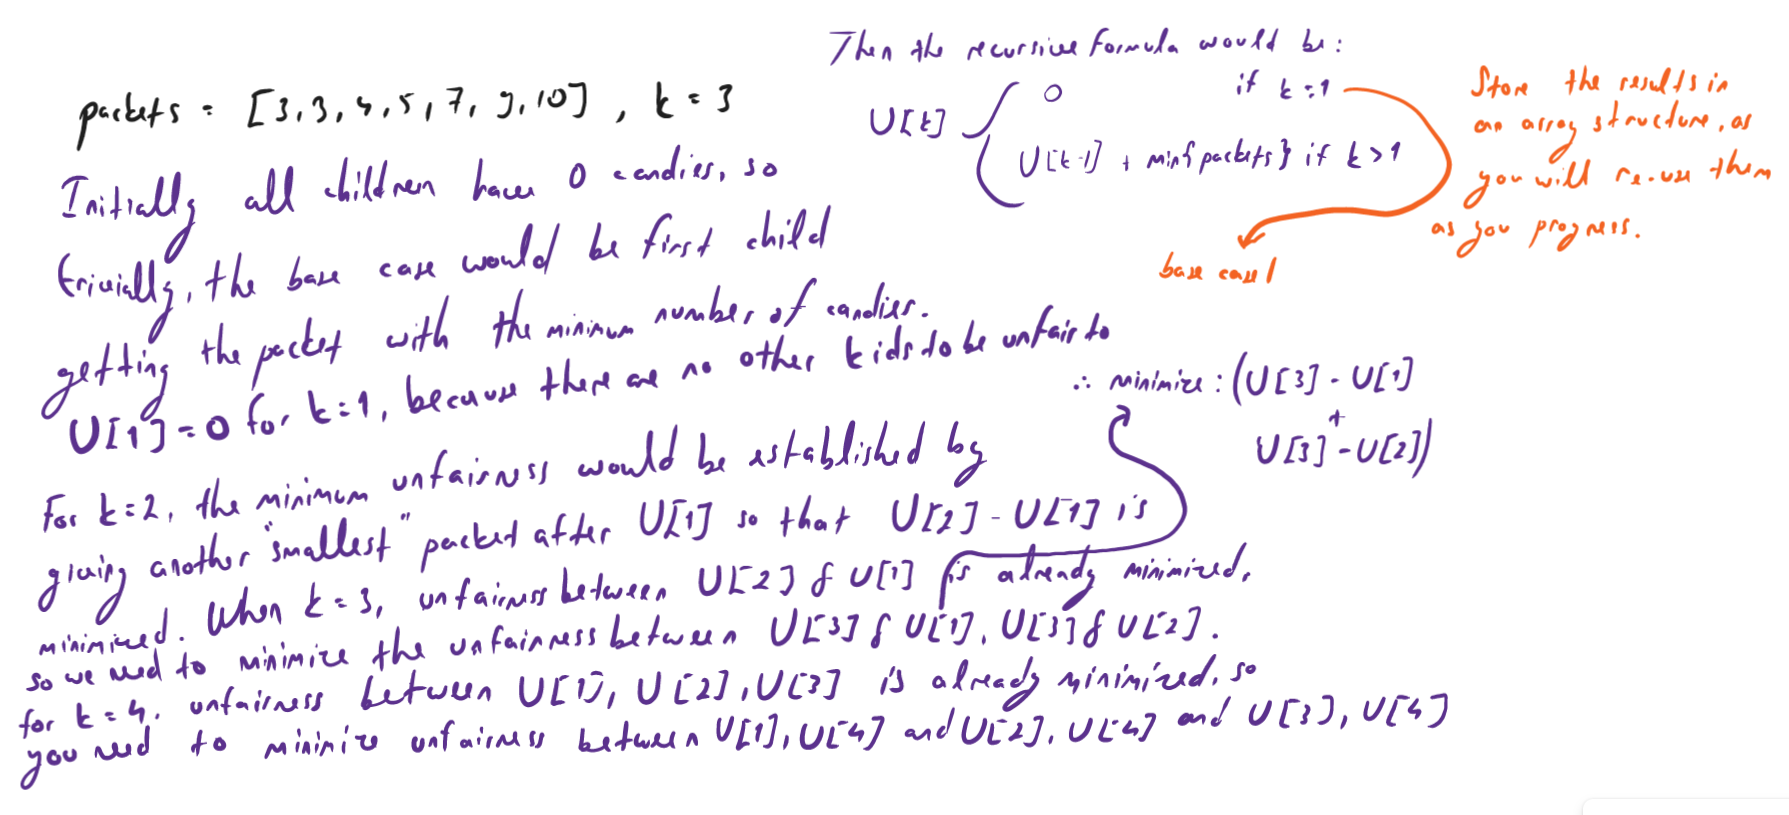 packets = [3,3,4,5,7,9,10], k = 3
Initially all children have 0 candies, so
trivially, the base case would be first child
getting the packet with the minimum number of candies.
U[1] = 0 for k=1, because there are no other kids to be unfair to
For k=2, the minimum unfairness would be established by
giving another "smallest" packet after U[1] so that U[2] - U[1] is
minimized. When k = 3, unfairness between U[2] & U[1] is already minimized,
so we need to minimize the unfairness between U[3] & U[1], U[3] & U[2].
for k=4, unfairness between U[1], U[2], U[3] is already minimized, so
you need to minimize unfairness between U[1], U[4] and U[2], U[4] and U[3], U[4]
Then the recursive formula would be:
0 if k=1
U[k]
U[k-1] + min{packets} if k>1
base case!
Store the results in
an array structure, as
you will re-use them
as you progress.
∴ minimize: (U[3] - U[1]
+
U[3] - U[2])